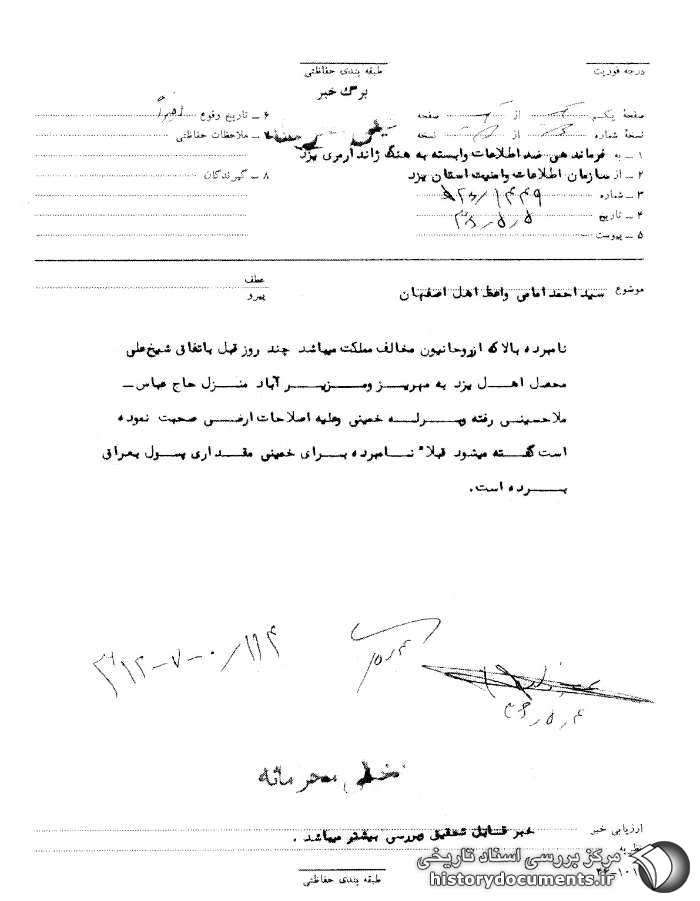 درجه فوریت
طبقه بندی حفاظتی
برگ خبر
صفحهٔ یکم از صفحه
نسخهٔ شماره از نسخه
۱ ــ به فرماندهی ضد اطلاعات وابسته به هنگ ژاندارمری یزد
۲ ــ از سازمان اطلاعات وامنیت استان یزد
۳ ــ شماره
۴ ــ تاریخ ۴۶٫۵٫۵
۵ ــ پیوست
۶ ــ تاریخ وقوع اخیراً
۷ ــ ملاحظات حفاظتی
۸ ــ گیرندگان
موضوع سید احمد امامی واعظ اهل اصفهان
عطف
پیرو
نامبرده بالا که از روحانیون مخالف مملکت میباشد چند روز قبل باتفاق شیخ علی
محصل اهل یزد به مهریز ومزیر آباد منزل حاج عباس ــ
ملاحسینی رفته وبرله خمینی وعلیه اصلاحات ارضی صحبت نموده
است گفته میشود قبلاً نامبرده برای خمینی مقداری پول بعراق
برده است.
۳۱۲-۷-۰/۱۱۴
۴۶٫۵٫۴
خیلی محرمانه
ارزیابی خبر خبر قابل تحقیق وبررسی بیشتر میباشد .
نظریه
طبقه بندی حفاظتی
مرکز بررسی اسناد تاریخی
historydocuments.ir